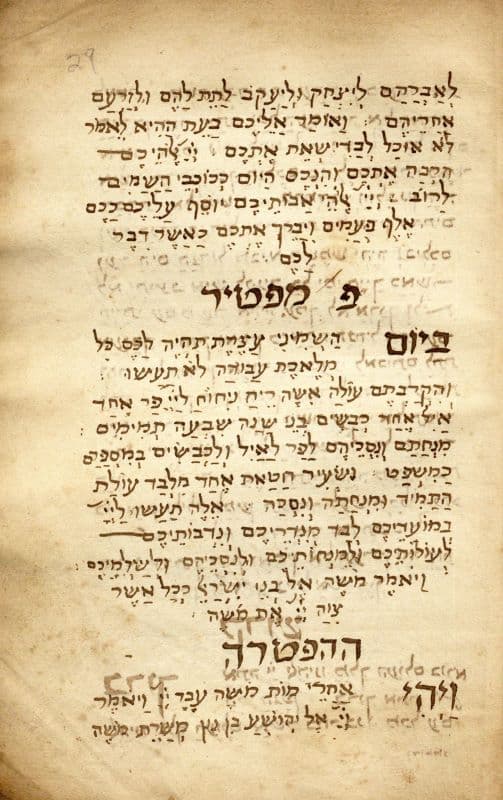 29
לְאַבְרָהָם לְיִצְחָק וּלְיַעֲקֹב לָתֵת לָהֶם וּלְזַרְעָם
אַחֲרֵיהֶם : וָאוֹמַר אֲלֵיכֶם בָּעֵת הַהִיא לֵאמֹר
לֹא אוּכַל לְבַדִּי שְׂאֵת אֶתְכֶם : יְיָ אֱלֹהֵיכֶם
הִרְבָּה אֶתְכֶם וְהִנְּכֶם הַיּוֹם כְּכוֹכְבֵי הַשָּׁמַיִם
לָרוֹב : יְיָ אֱלֹהֵי אֲבוֹתֵיכֶם יוֹסֵף עֲלֵיכֶם כָּכֶם
אֶלֶף פְּעָמִים וִיבָרֵךְ אֶתְכֶם כַּאֲשֶׁר דִּבֶּר
לָכֶם
פ׳ מפטיר
בַּיּוֹם הַשְּׁמִינִי עֲצֶרֶת תִּהְיֶה לָכֶם כָּל
מְלֶאכֶת עֲבוֹדָה לֹא תַעֲשׂוּ :
וְהִקְרַבְתֶּם עוֹלָה אִשֵּׁה רֵיחַ נִיחוֹחַ לַייָ פַּר אֶחָד
אַיִל אֶחָד כְּבָשִׂים בְּנֵי שָׁנָה שִׁבְעָה תְּמִימִים :
מִנְחָתָם וְנִסְכֵּיהֶם לַפָּר לָאַיִל וְלַכְּבָשִׂים בְּמִסְפָּרָם
כַּמִּשְׁפָּט : וּשְׂעִיר חַטָּאת אֶחָד מִלְּבַד עוֹלַת
הַתָּמִיד וּמִנְחָתָהּ וְנִסְכָּהּ : אֵלֶּה תַּעֲשׂוּ לַייָ
בְּמוֹעֲדֵיכֶם לְבַד מִנִּדְרֵיכֶם וְנִדְבוֹתֵיכֶם
לְעוֹלוֹתֵיכֶם וּלְמִנְחוֹתֵיכֶם וּלְנִסְכֵּיהֶם וּלְשַׁלְמֵיכֶם :
וַיֹּאמֶר מֹשֶׁה אֶל בְּנֵי יִשְׂרָאֵל כְּכָל אֲשֶׁר
צִוָּה יְיָ אֶת מֹשֶׁה
ההפטרה
וַיְהִי אַחֲרֵי מוֹת מֹשֶׁה עֶבֶד יְיָ וַיֹּאמֶר
יְיָ אֶל יְהוֹשֻׁעַ בִּן נוּן מְשָׁרֵת מֹשֶׁה